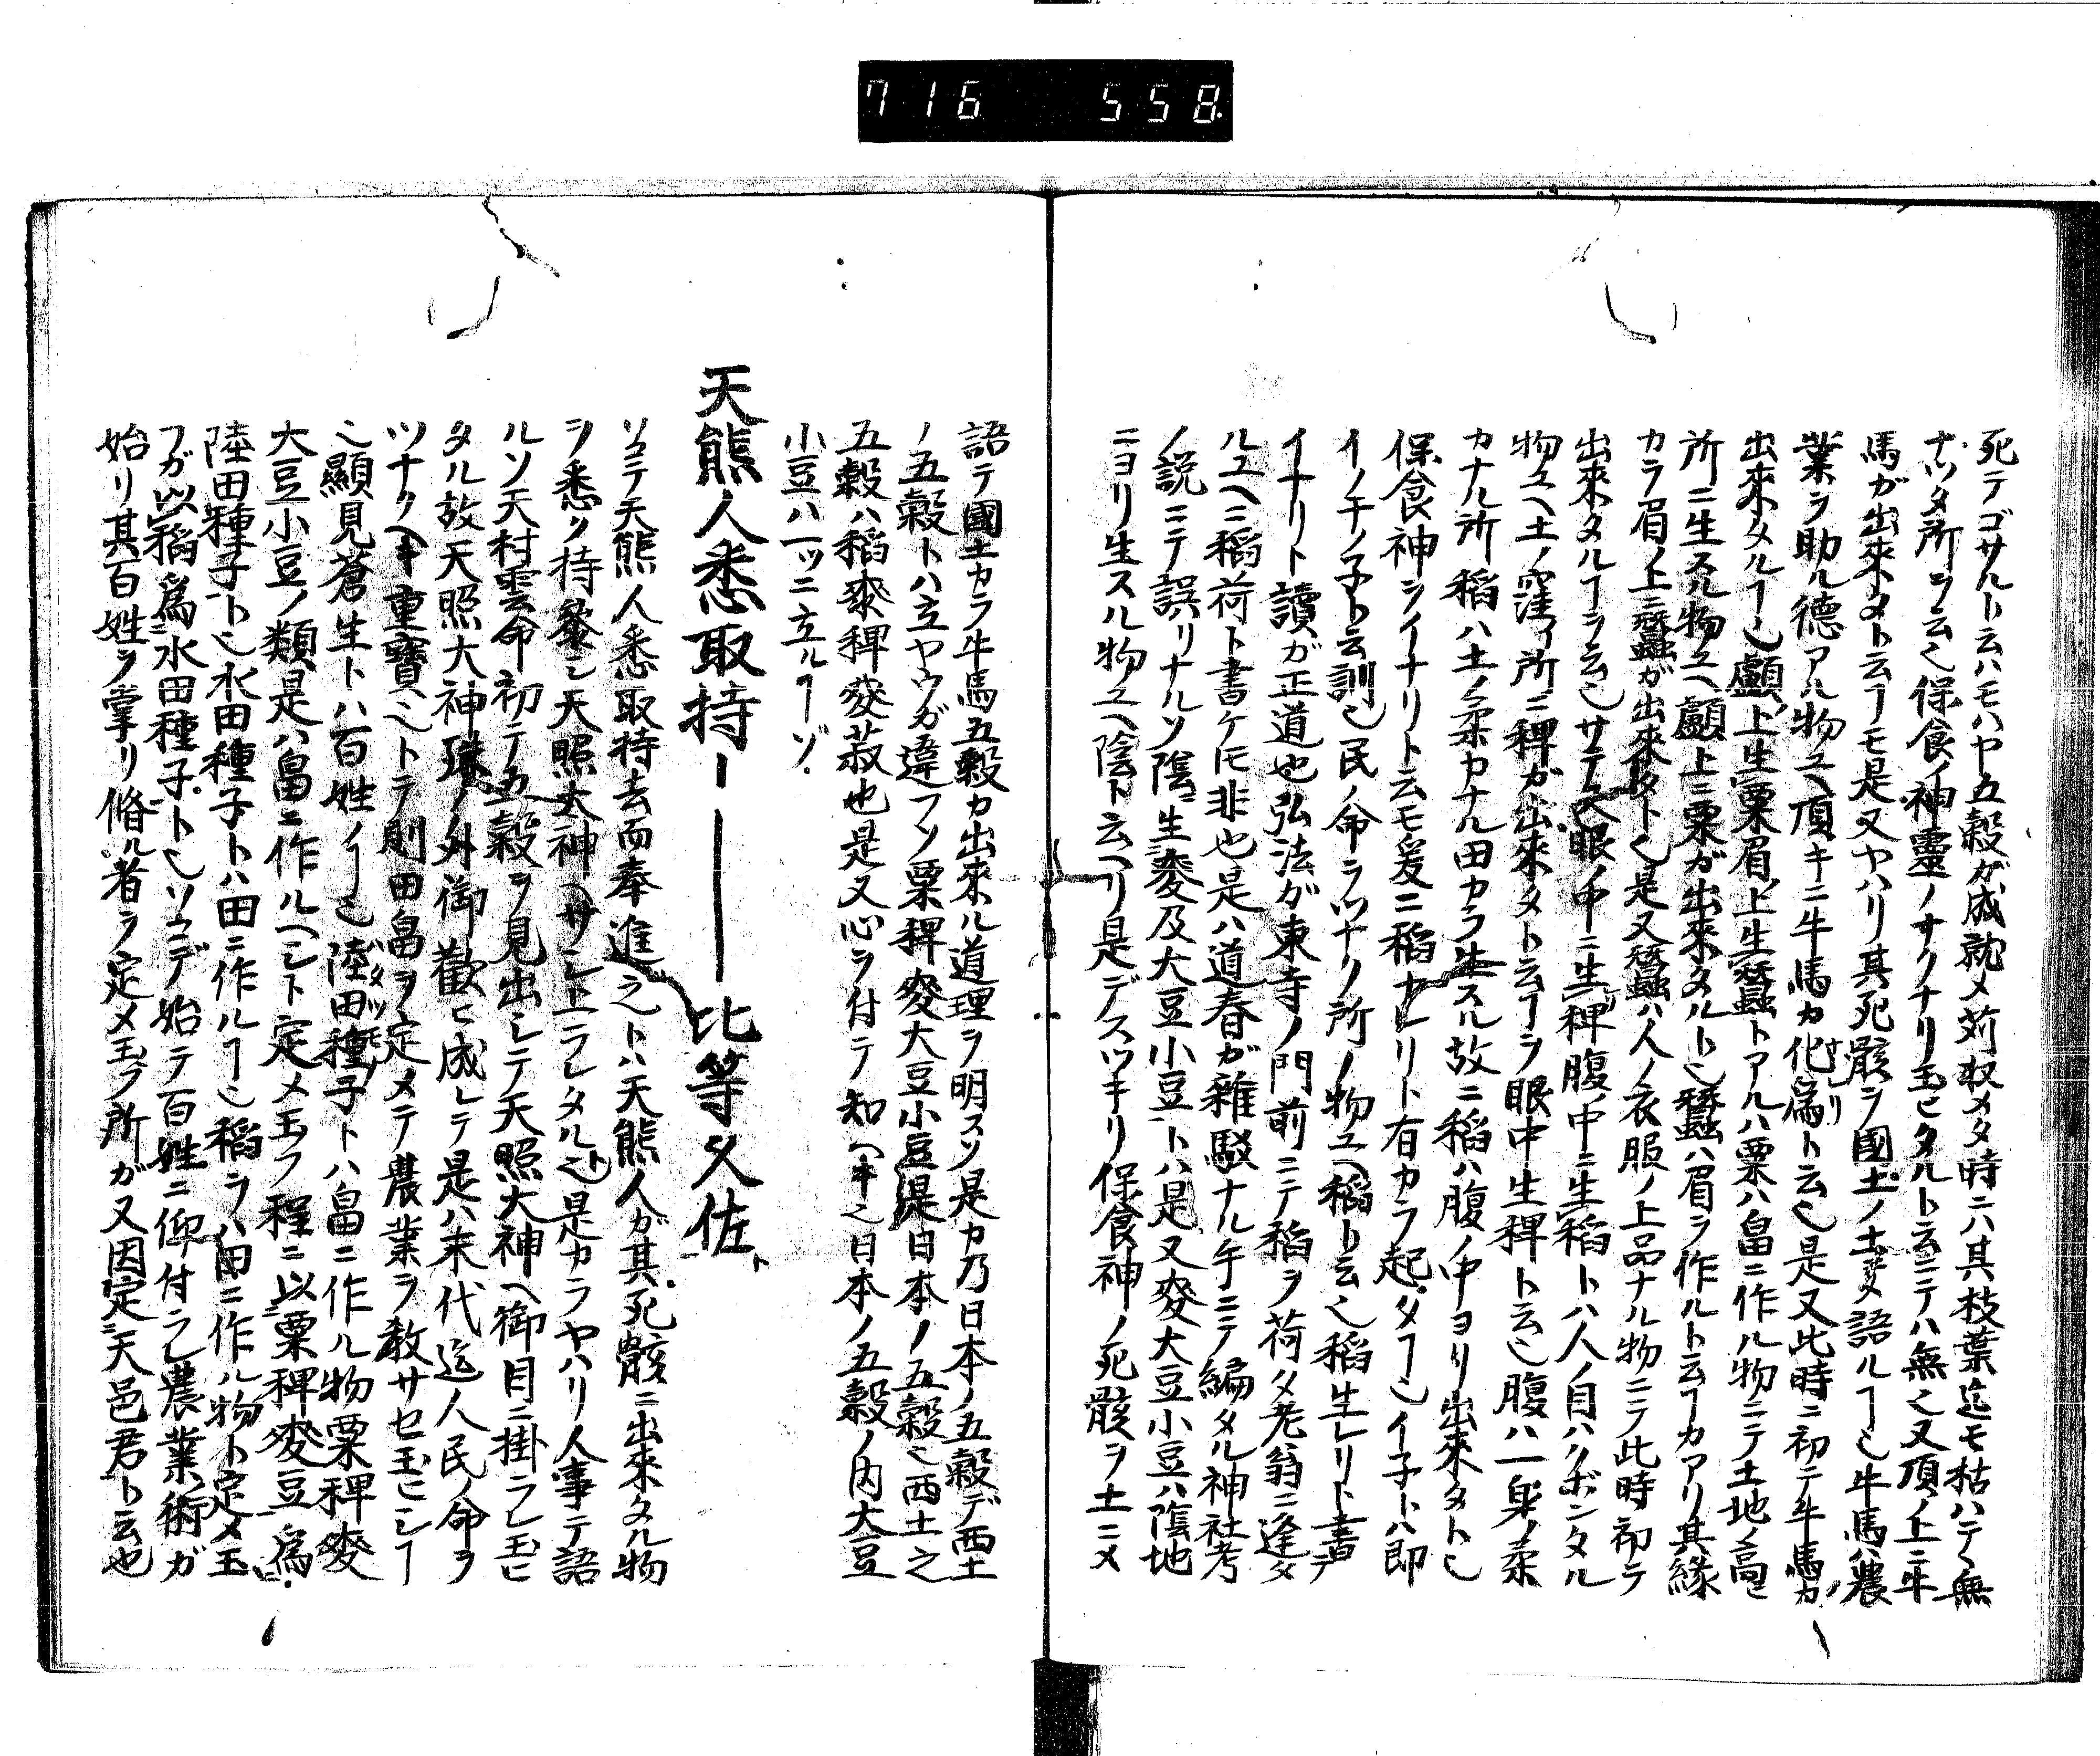 716 558
死テゴサルト云ハモハヤ五穀ガ成就メ苅収メタ時ニハ其枝葉迄モ枯ハテヽ無
ナツタ所ヲ云也保食ノ神霊ノナクナリ玉ヒタルト云ニテハ無之又頂ノ上ニ牛
馬ガ出來タト云ヿモ是又ヤハリ其死骸ヲ國土ノ土ニメ語ルヿ也牛馬ハ農
業ヲ助ル德アル物ユヘ頂キニ牛馬カ化爲ト云也是又此時ニ初テ牛馬カ
出來タルヿ也顱上生粟眉上生蠶トアルハ粟ハ畠ニ作ル物ニテ土地ノ高
所ニ生スル物ユヘ顱上ニ粟ガ出來タルト也蠶ハ眉ヲ作ルト云ヿカアリ其縁
カラ眉ノ上ニ蠶ガ出來タト也是又蠶ハ人ノ衣服ノ上品ナル物ニテ此時初テ
出來タルヿヲ云也サテ又眼ノ中ニ生稗腹ノ中ニ生稻トハ人ノ目ハクボンタル
物ユヘ土ノ窪イ所ニ稗ガ出來タト云ヿヲ眼中生稗ト云也腹ハ一身ノ柔
カナル所稻ハ土ノ柔カナル田カラ生スル故ニ稻ハ腹ノ中ヨリ出來タト也
保食神ヲイナリト云モ爰ニ稻ナレリト有カラ起タヿ也イ子トハ即
イノチノ子ト云訓也民ノ命ヲツナク所ノ物ユヘ稻ト云也稻生レリト書テ
イナリト讀ガ正道也弘法ガ東寺ノ門前ニテ稻ヲ荷タ老翁ニ逢タ
ルユヘニ稻荷ト書ケ𪜈非也是ハ道春ガ雜駁ナル手ニテ編タル神社考
ノ説ニテ誤リナルソ陰ニ生麥及大豆小豆トハ是又麥大豆小豆ハ陰地
ニヨリ生スル物ユヘ陰ト云ヘリ是デスツキリ保食神ノ死骸ヲ土ニメ
語テ國土カラ牛馬五穀カ出來ル道理ヲ明スソ是カ乃日本ノ五穀デ西土
ノ五穀トハ立ヤウガ違フソ粟稗麥大豆小豆是日本ノ五穀也西土之
五穀ハ稻黍稗麥菽也是又心ヲ付テ知ヘキ也日本ノ五穀ノ内大豆
小豆ハ一ツニ立ルヿゾ
天熊人悉取持ー――比等久佐ト
ソコテ天熊人悉取持去而奉進之トハ天熊人ガ其死骸ニ出來タル物
ヲ悉ク持參シ天照太神ヘサシ上ラレタルト也是カラヤハリ人事テ語
ルソ天村雲命初テ五穀ヲ見出シテ天照大神ヘ御目ニ掛ラレ玉ヒ
タル故天照大神殊ノ外御歡ヒ成レテ是ハ末代迄人民ノ命ヲ
ツナクヘキ重寶也トテ則田畠ヲ定メテ農業ヲ教サセ玉ヒシヿ
也顯見蒼生トハ百姓ノヿ也陸田種子トハ畠ニ作ル物粟稗麥
大豆小豆ノ類是ハ畠ニ作ルヘシト定メ玉フ程ニ以粟稗麥豆爲
陸田種子ト也水田種子トハ田ニ作ルヿ也稻ヲハ田ニ作ル物ト定メ玉
フガ以稻爲水田種子ト也ソコデ始テ百姓ニ仰付ラレ農業術ガ
始リ其百姓ヲ掌リ脩ル者ヲ定メ玉フ所ガ又因定天邑君ト云也